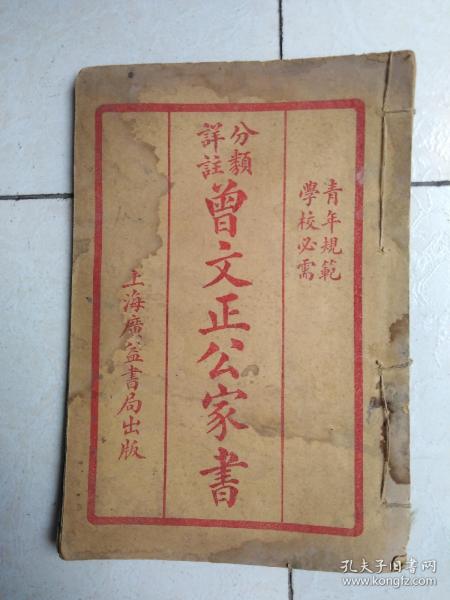 青年規範
學校必需
分類
詳註
曾文正公家書
上海廣益書局出版
孔夫子旧书网
www.kongfz.com